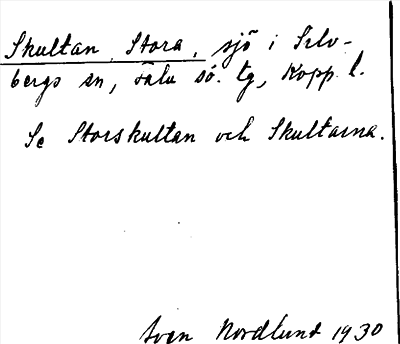 Skultan, Stora, sjö i Silv-
bergs sn, Falu sö. tg, Kopp. l.
Se Storskultan och Skultarna.
Sven Nordlund 1930